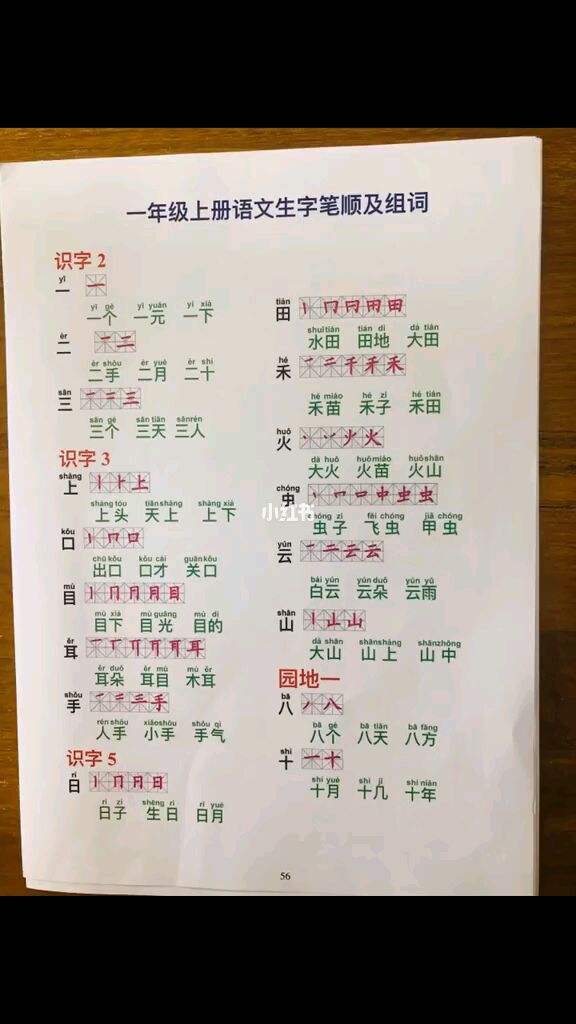 一年级上册语文生字笔顺及组词
识字 2
yī
一 一
yī gè yī yuán yí xià
一个 一元 一下
èr
二 一 二
èr shǒu èr yuè èr shí
二手 二月 二十
sān
三 一 二 三
sān gè sān tiān sānrén
三个 三天 三人
识字 3
shàng
上 丨 卜 上
shàng tóu tiānshàng shàng xià
上头 天上 上下
kǒu
口 丨 冂 口
chū kǒu kǒu cái guānkǒu
出口 口才 关口
mù
目 丨 冂 月 月 目
mù xià mù guāng mù dì
目下 目光 目的
ěr
耳
ěr duǒ ěr mù mù ěr
耳朵 耳目 木耳
shǒu
手 手
rén shǒu xiǎoshǒu shǒu qì
人手 小手 手气
识字 5
rì
日 丨 冂 月 日
rì zi shēng rì rì yuè
日子 生日 日月
tián
田 丨 冂 田
shuǐ tián tián dì dà tián
水田 田地 大田
hé
禾 一 二 千 禾 禾
hé miáo hé zǐ hé tián
禾苗 禾子 禾田
huǒ
火 火
dà huǒ huǒmiáo huǒshān
大火 火苗 火山
chóng
虫 丨 冂 口 中 虫 虫
chóng zi fēi chóng jiǎ chóng
虫子 飞虫 甲虫
yún
云 一 二 云 云
bái yún yún duǒ yún yǔ
白云 云朵 云雨
shān
山 丨 山 山
dà shān shānshàng shānzhōng
大山 山上 山中
园地一
bā
八 丿 八
bā gè bā tiān bā fāng
八个 八天 八方
shí
十 一 十
shí yuè shí jǐ shí nián
十月 十几 十年
56
小红书